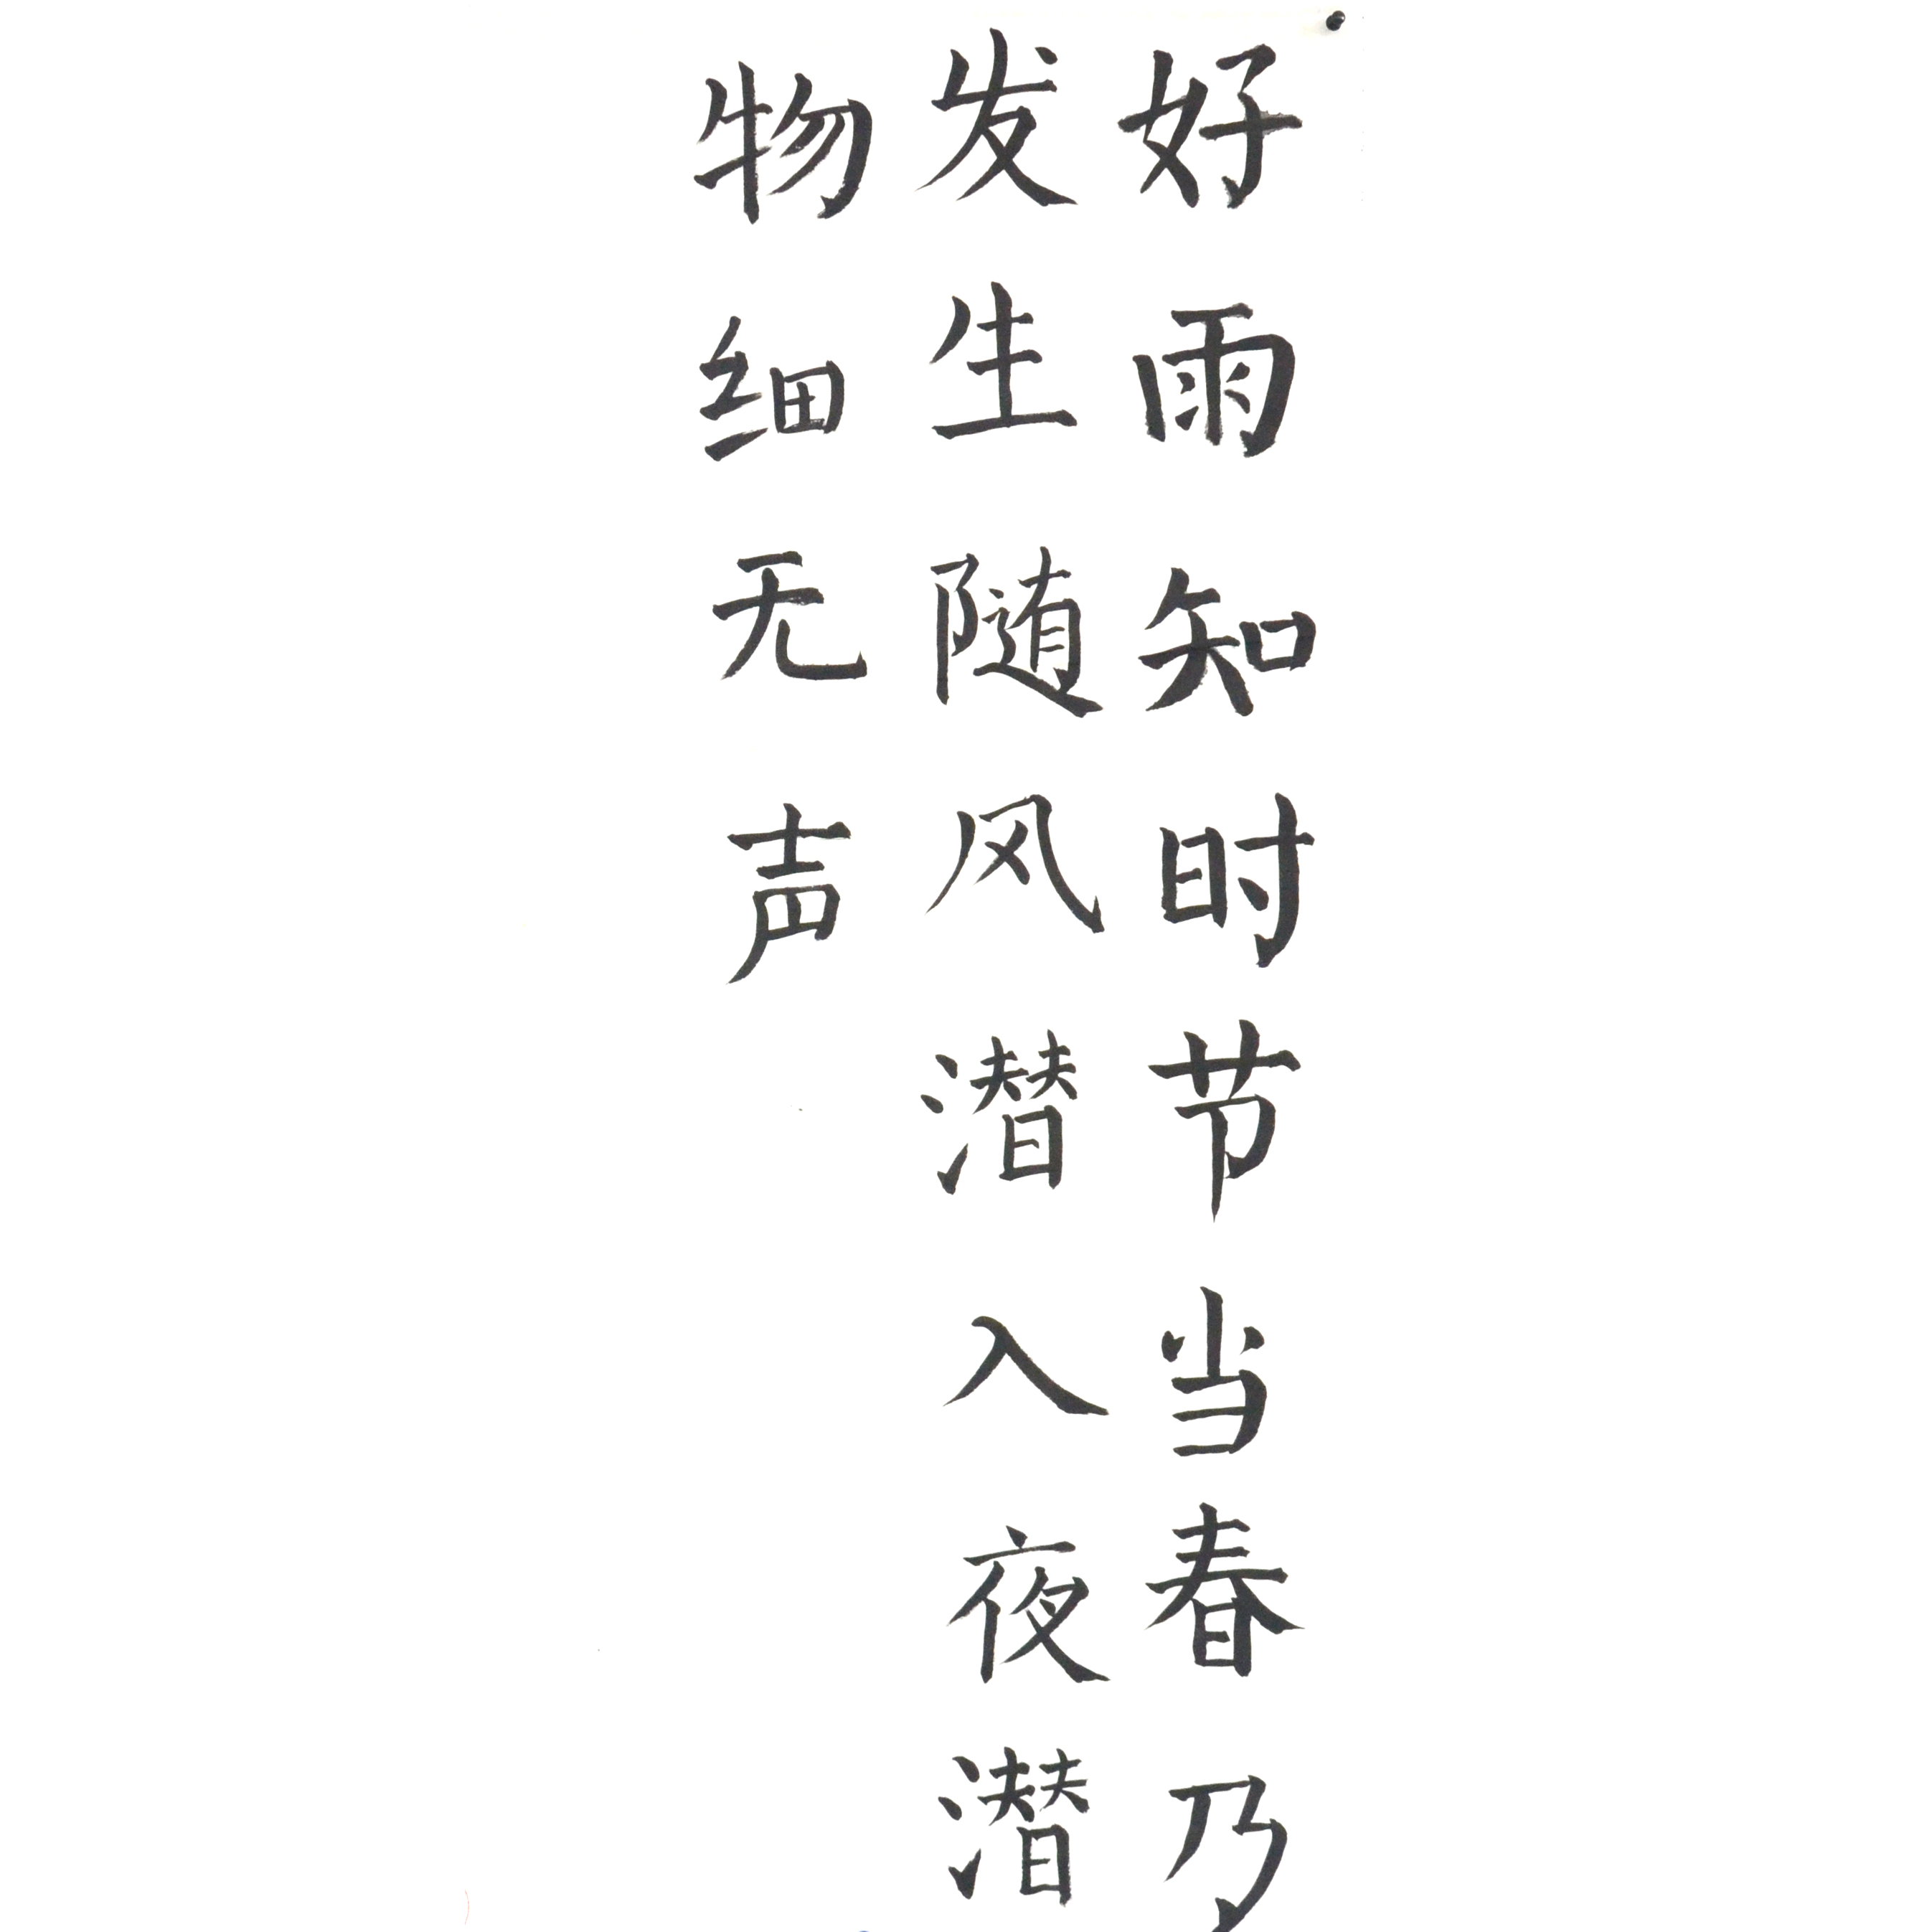 好雨知时节当春乃
发生随风潜入夜潜
物细无声